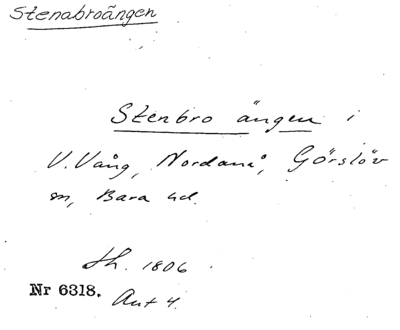 Stenabroängen
Stenbro ängen i
V. Vång, Nordanå, Görslöv
sn, Bara hd.
Sh. 1806
Nr 6318. Akt 4.